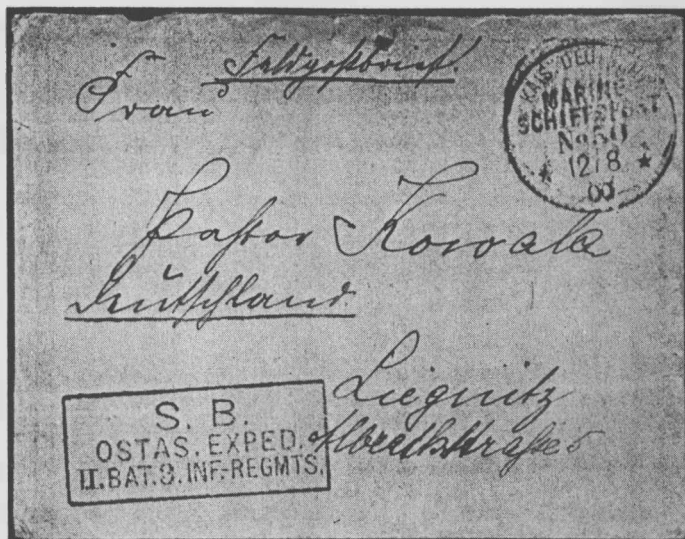 Feldpostbrief
Frau
Pastor Kowala
Deutschland
Liegnitz
Albrechtstraße 5
KAIS. DEUTSCHE
MARINE
SCHIFFSPOST
No 50
* 12/8 *
00
S. B.
OSTAS. EXPED.
II. BAT. 3. INF.-REGMTS.